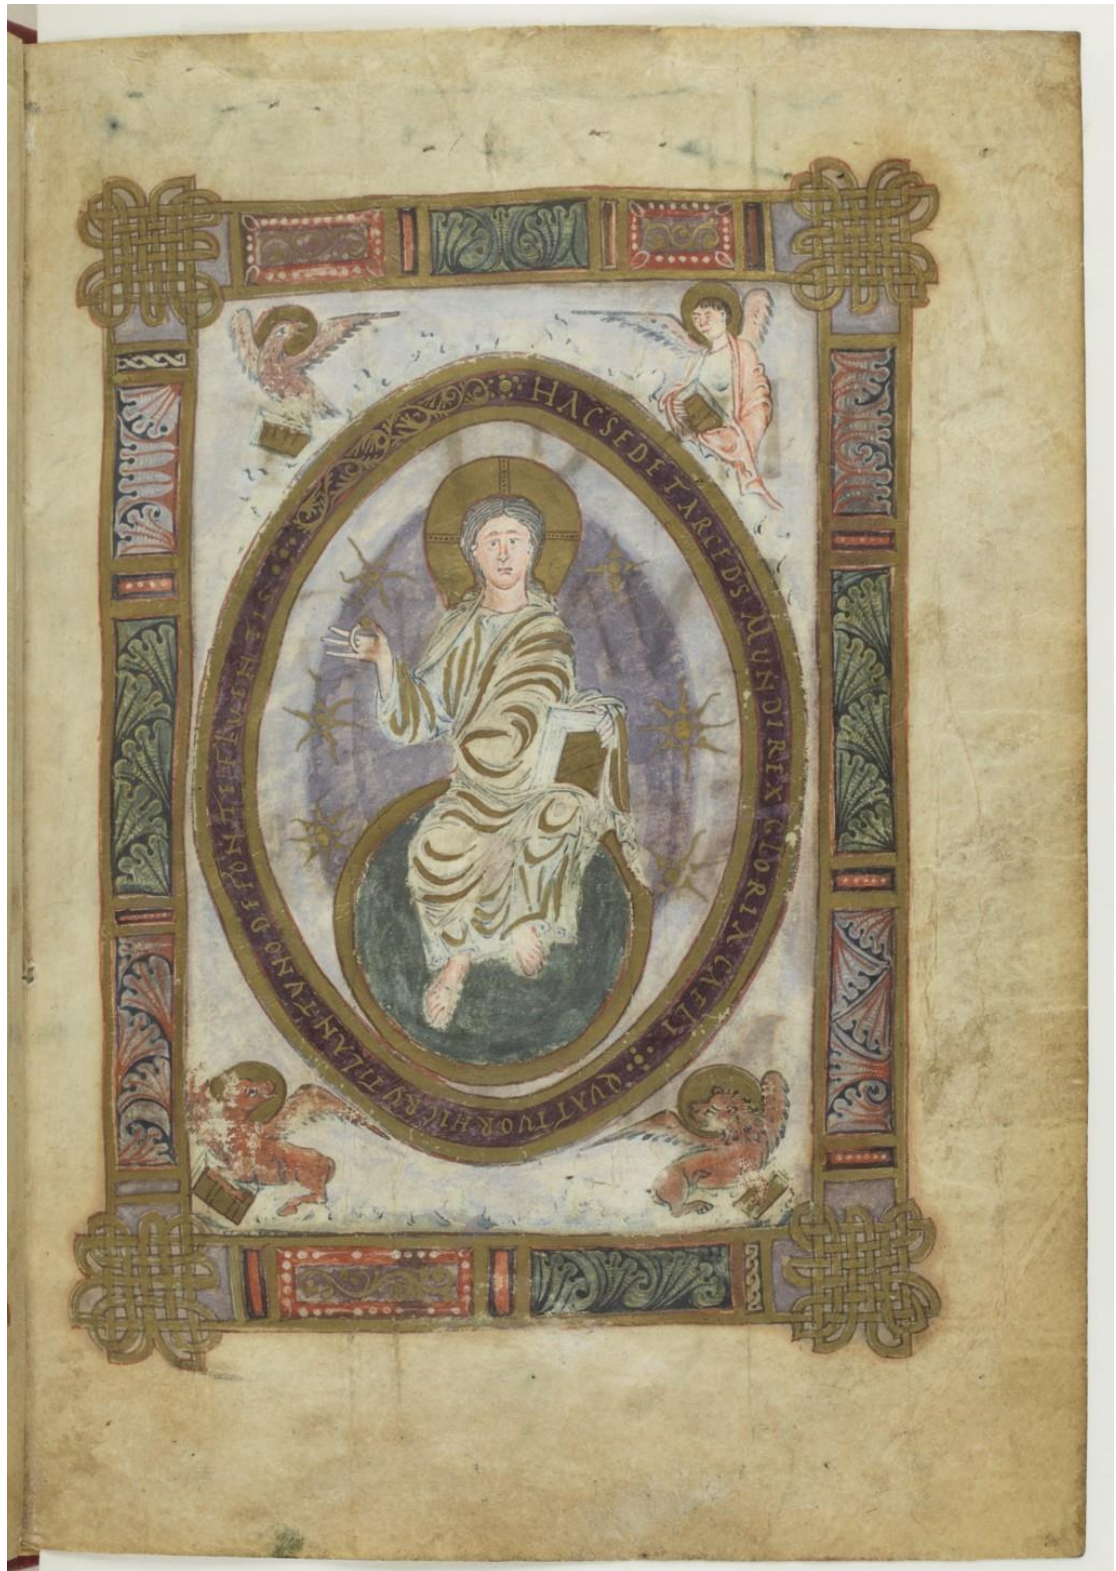 HAC SEDET ARCE DS MUNDI REX GLORIA CAELI
QUATTUOR HIC RUTILANT VNO DE FONTE FLUENTIS